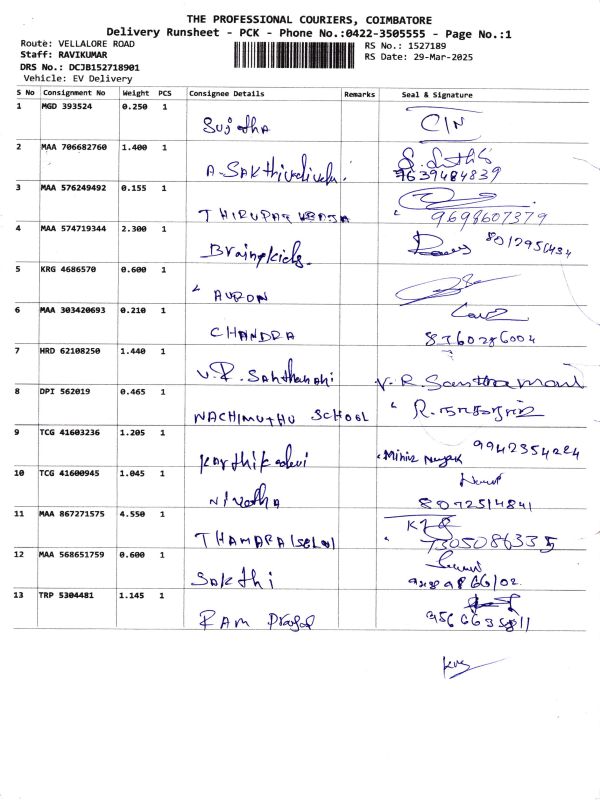 THE PROFESSIONAL COURIERS, COIMBATORE
Delivery Runsheet - PCK - Phone No.:0422-3505555 - Page No.:1
Route: VELLALORE ROAD
RS No.: 1527189
Staff: RAVIKUMAR
RS Date: 29-Mar-2025
DRS No.: DCJB152718901
Vehicle: EV Delivery
S No Consignment No Weight PCS Consignee Details Remarks Seal & Signature
1 MGD 393524 0.250 1
Sujatha C/N
2 MAA 706682760 1.400 1
A. SAKthivelivelu.
7639484839
3 MAA 576249492 0.155 1
THIRUPAT 9698607379
4 MAA 574719344 2.300 1
Brainykicks. 8012956434
5 KRG 4686570 0.600 1
AURON
6 MAA 303420693 0.210 1
CHANDRA 8760286004
7 HRD 62108250 1.440 1
V.R. Santhamani V.R. Santhamani
8 DPI 562019 0.465 1
NACHIMUTHU SCHOOL
9 TCG 41603236 1.205 1
Karthikadevi 9942354224
10 TCG 41600945 1.045 1
Nivetha 8072514841
11 MAA 867271575 4.550 1
THAMARAISELVI 7305086335
12 MAA 568651759 0.600 1
Sakthi
13 TRP 5304481 1.145 1
RAM Prasad 9566635811